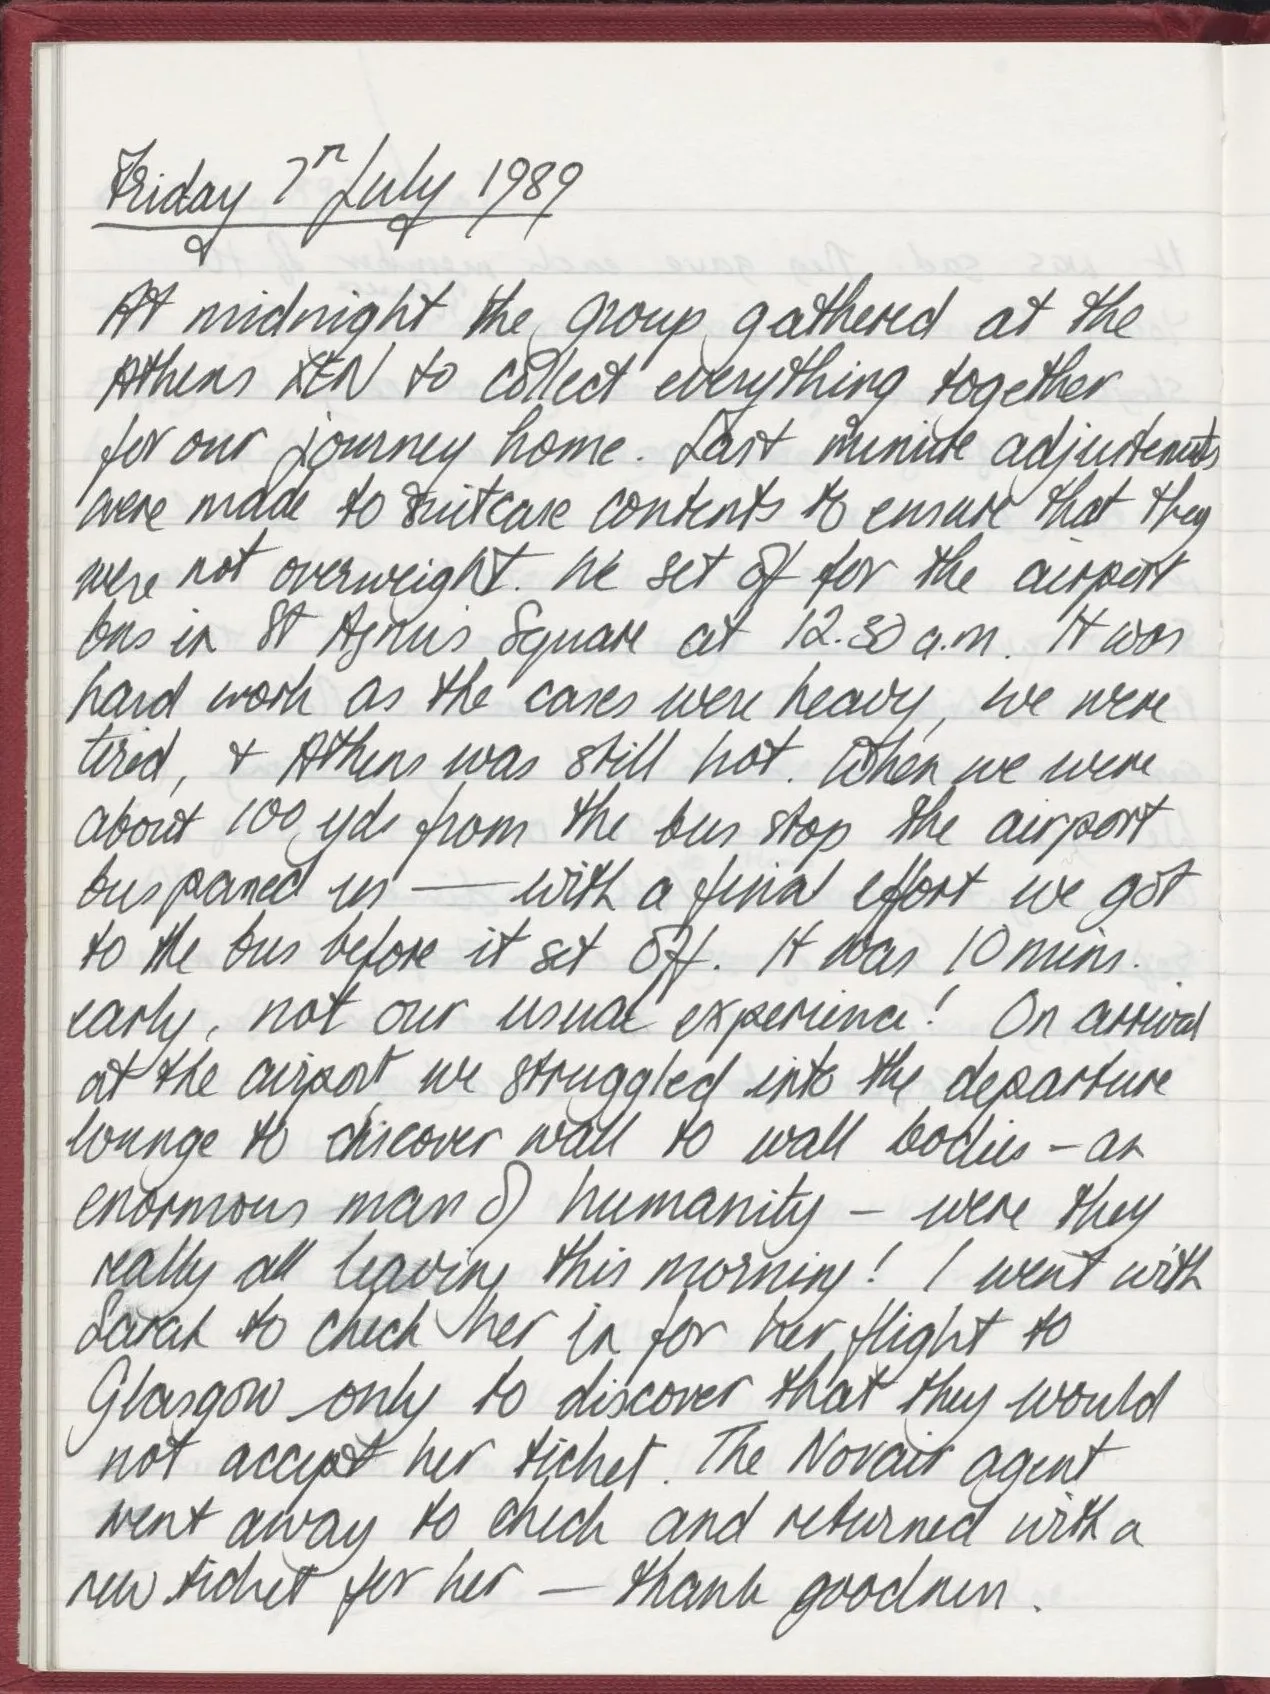 Friday 7th July 1989
At midnight the group gathered at the
Athens XEN to collect everything together
for our journey home. Last minute adjustments
were made to suitcase contents to ensure that they
were not overweight. We set off for the airport
bus in St Square at 12.30 a.m. It was
hard work as the cases were heavy, we were
tired, + Athens was still hot. When we were
about 100 yds from the bus stop the airport
bus passed us — with a final effort we got
to the bus before it set off. It was 10 mins.
early, not our usual experience! On arrival
at the airport we struggled into the departure
lounge to discover wall to wall bodies – an
enormous mass of humanity – were they
really all leaving this morning! I went with
Sarah to check her in for her flight to
Glasgow only to discover that they would
not accept her ticket. The Novair agent
went away to check and returned with a
new ticket for her — thank goodness.